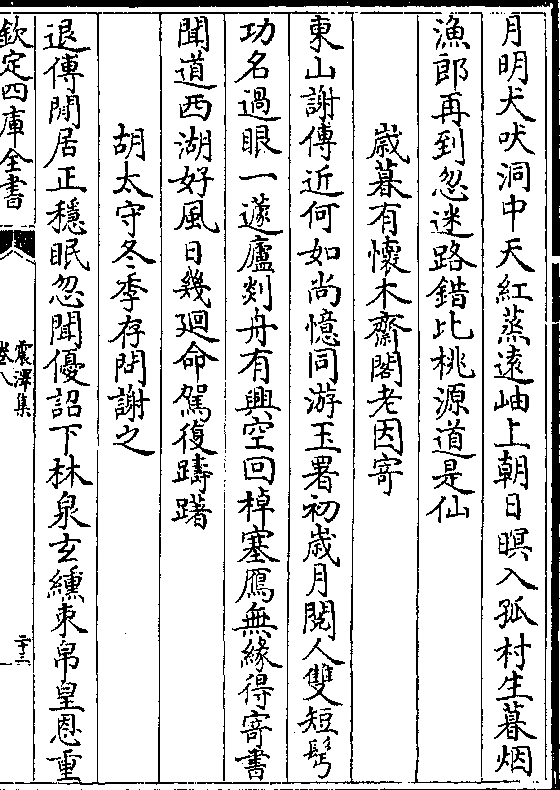 月明犬吠洞中天紅蒸遠岫上朝日暝入孤村生暮烟
漁郎再到忽迷路錯比桃源道是仙
歲暮有懷木齋閣老因寄
東山謝傅近何如尚憶同游玉署初歲月閱人雙短鬢
功名過眼一蘧廬剡舟有興空回棹塞鴈無緣得寄書
聞道西湖好風日幾廻命駕復躊躇
胡太守冬季存問謝之
退傅閒居正穩眠忽聞優詔下林泉玄纁束帛皇恩重
欽定四庫全書
震澤集
卷八
二十三